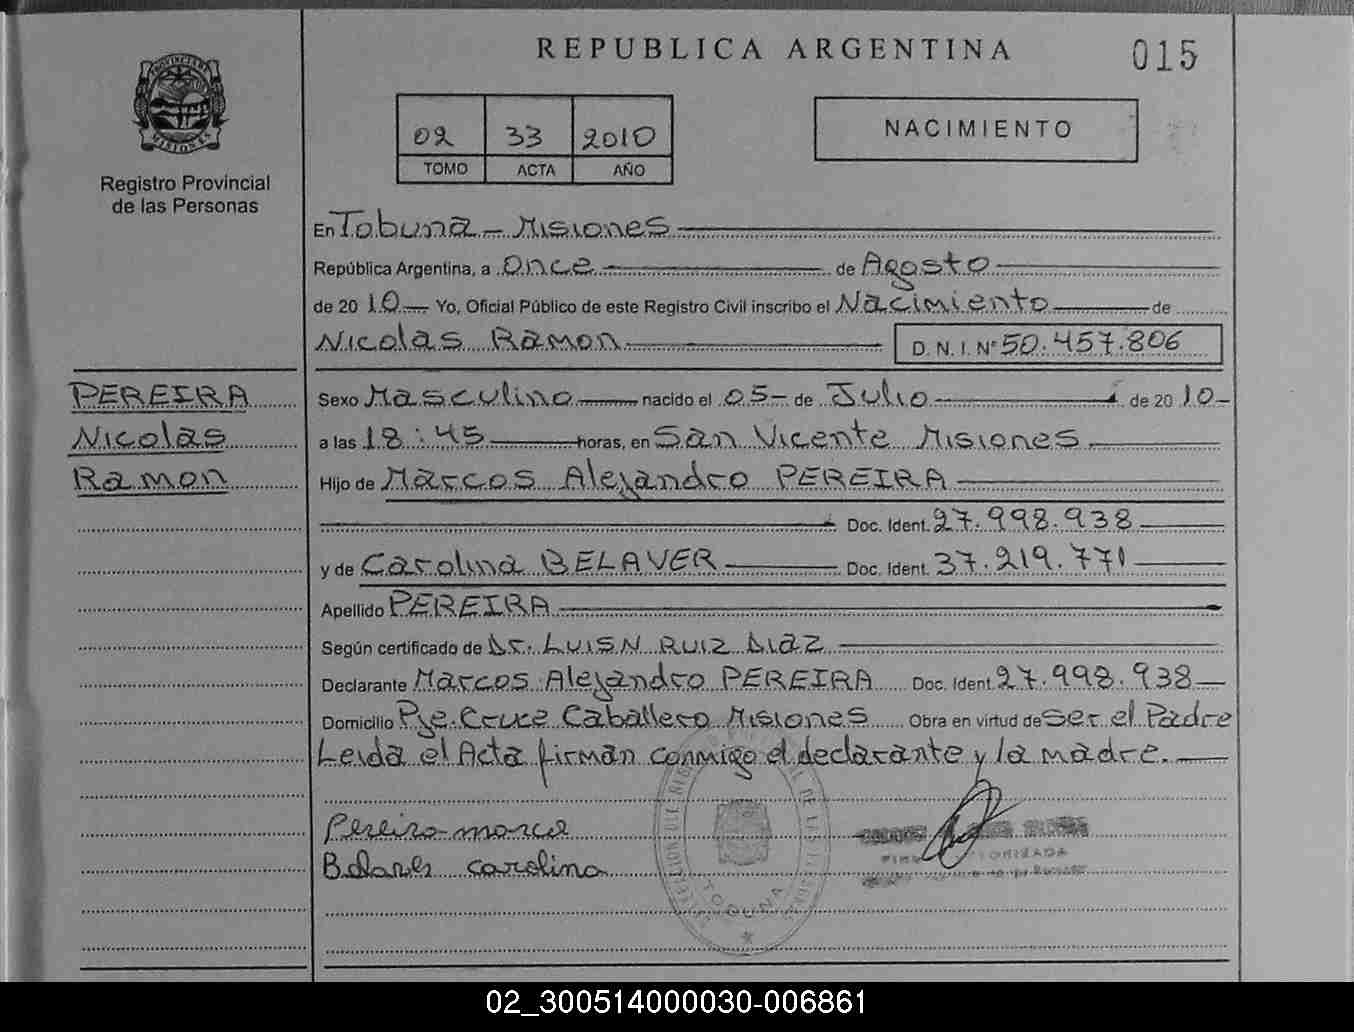 REPUBLICA ARGENTINA
015
PROVINCIA DE MISIONES
Registro Provincial
de las Personas
02 33 2010
TOMO ACTA AÑO
NACIMIENTO
En Tobuna - Misiones
República Argentina, a Once de Agosto
de 2010 Yo, Oficial Público de este Registro Civil inscribo el Nacimiento de
Nicolas Ramon D. N. I. Nº 50.457.806
PEREIRA
Nicolas
Ramon
Sexo Masculino nacido el 05- de Julio de 2010-
a las 18:45 horas, en San Vicente Misiones
Hijo de Marcos Alejandro PEREIRA
Doc. Ident. 27.998.938
y de Carolina BELAVER Doc. Ident. 37.219.771
Apellido PEREIRA
Según certificado de Dr. LUIS N RUIZ DIAZ
Declarante Marcos Alejandro PEREIRA Doc. Ident. 27.998.938
Domicilio Pje. Cruce Caballero Misiones Obra en virtud de ser el Padre
Leida el Acta firman conmigo el declarante y la madre.
Pereira
carolina
TOBUNA
AUTORIZADA
02_300514000030-006861